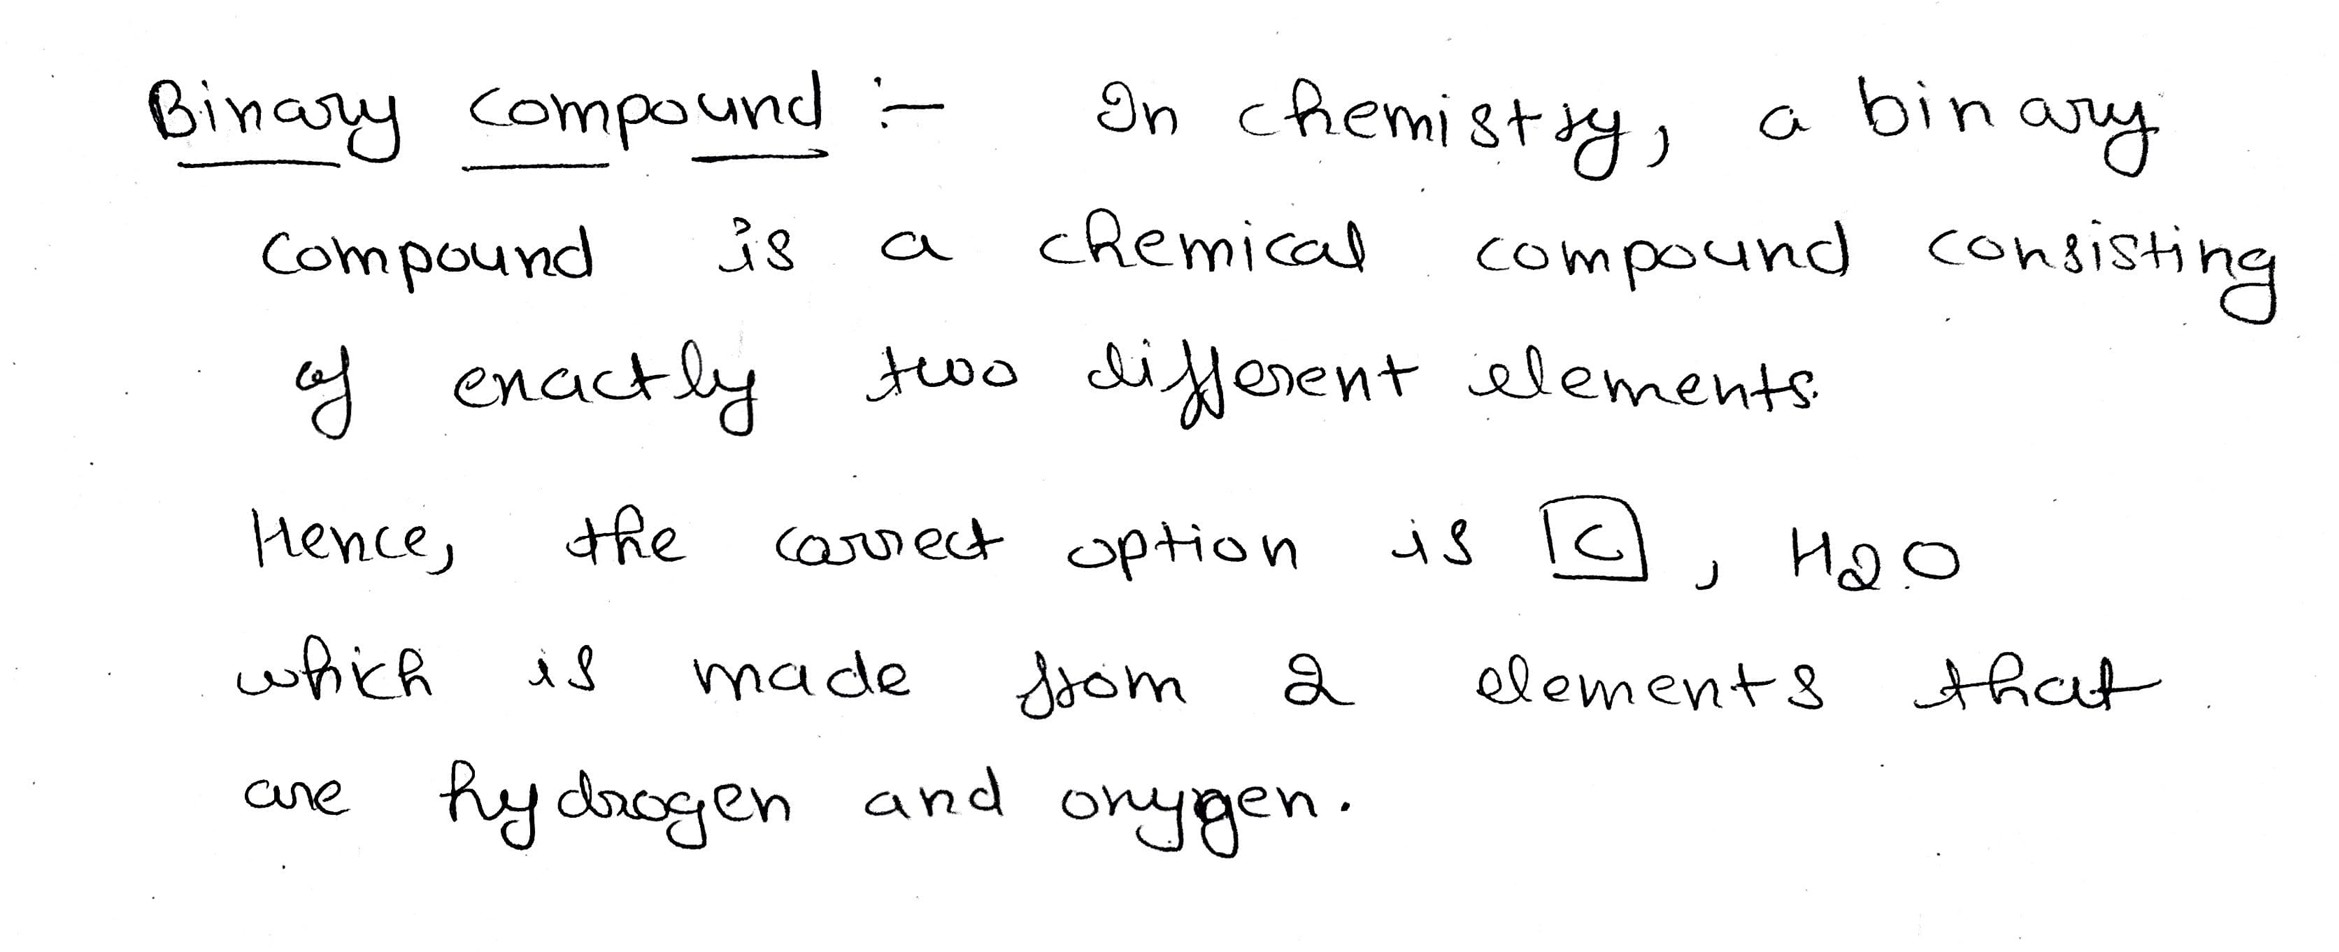 Binary compound :- In chemistry, a binary
compound is a chemical compound consisting
of exactly two different elements.
Hence, the correct option is C, H2O
which is made from 2 elements that
are hydrogen and oxygen.